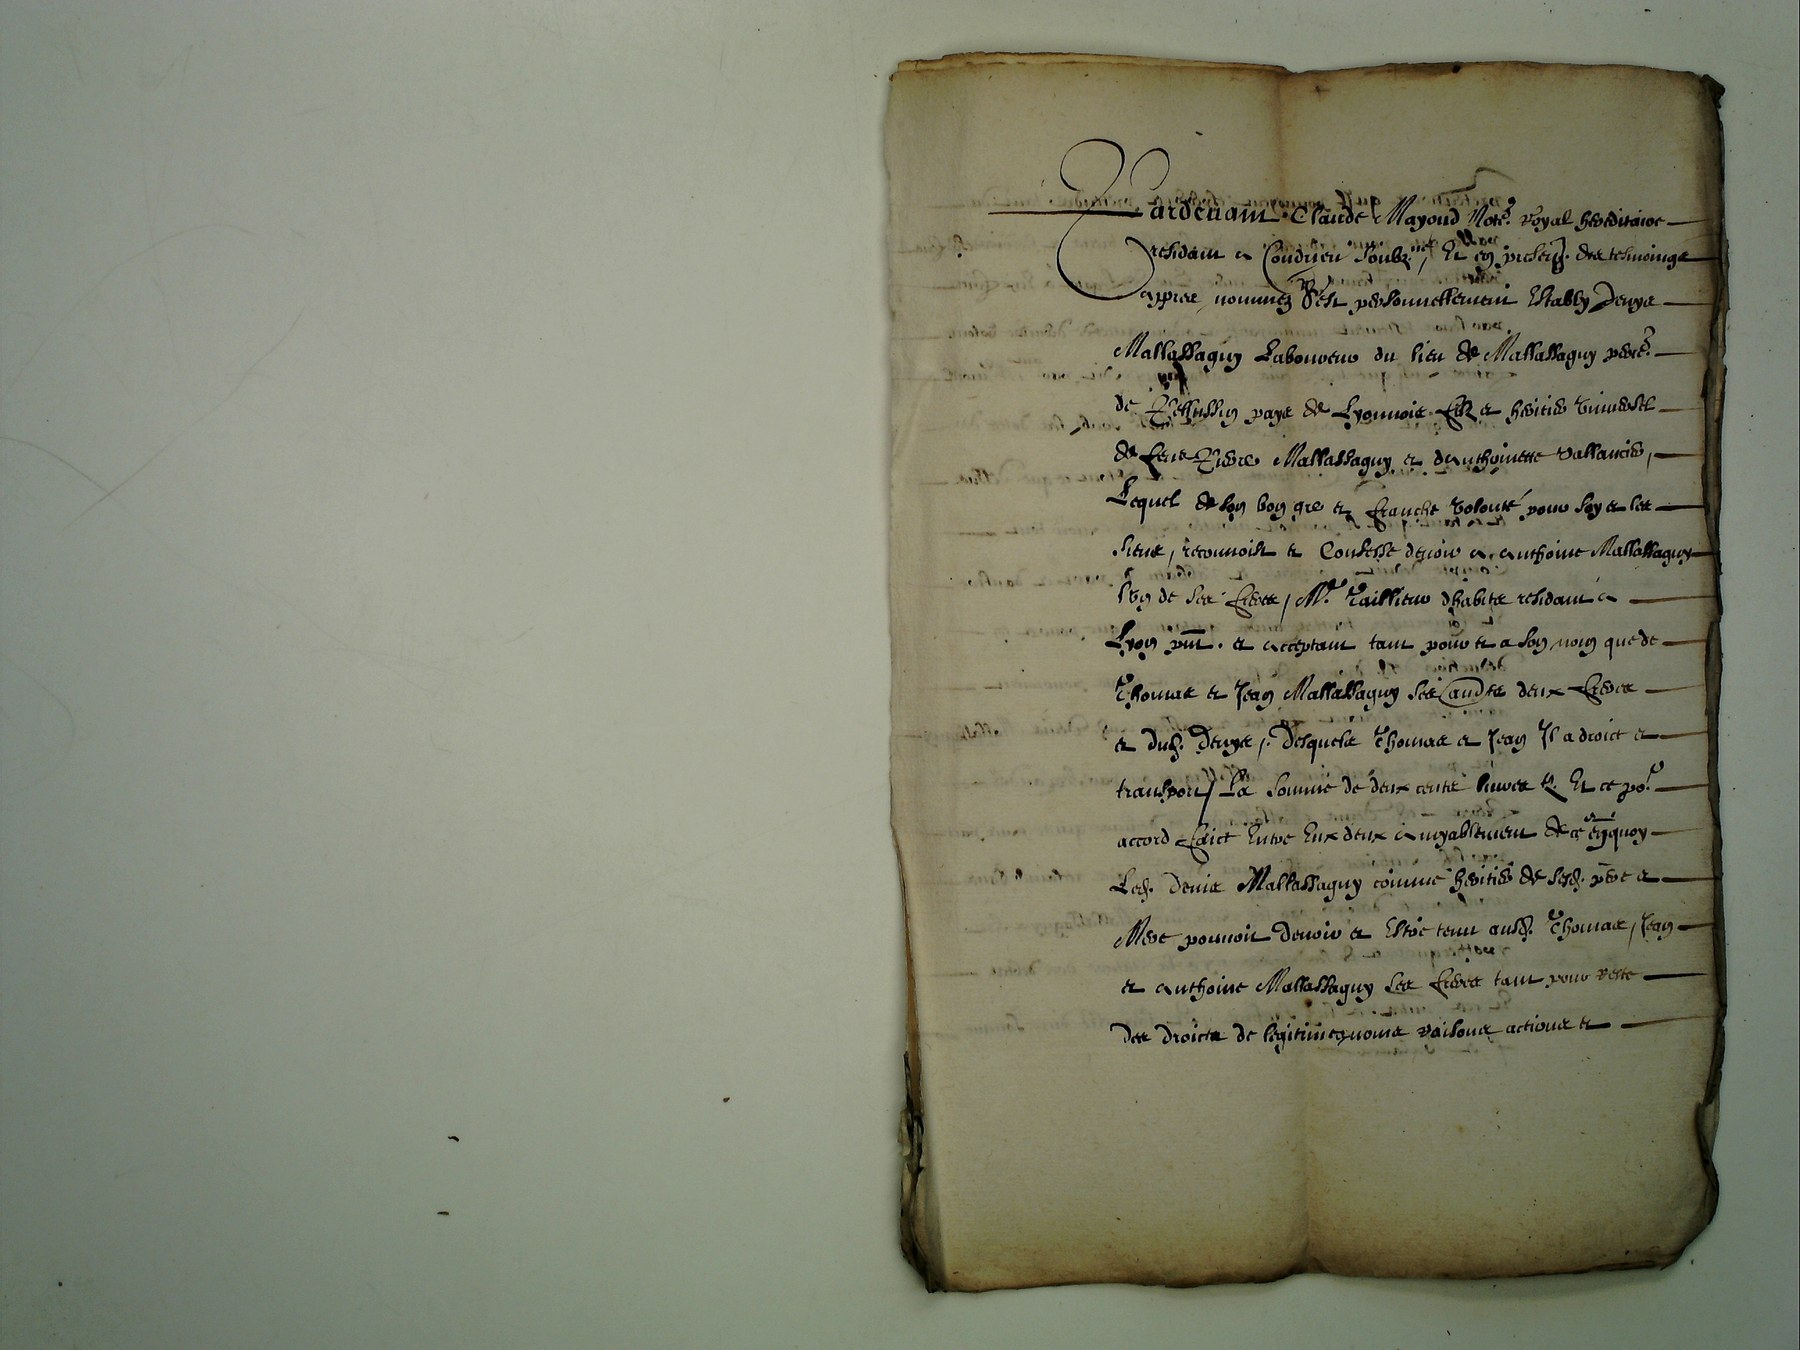 Pardevant Claude Mayoud Not.re royal hereditaire
residant a Condrieu soubz.né, Et en presen. des tesmoings
appres nommez S'est personnellement Estably Denys
Mallassagny Laboureur du lieu de Mallassagny parr.e
de Pellussin pays de Lyonnois filz et heritier universel
de feus Pierre Mallassagny et d'Anthoinette Vallancier,
Lequel de son bon gré et franche volonté pour soy et les
siens, reconnoist et Confesse devoir a Anthoine Mallassagny
l'un de ses freres, M.e Tailleur d'habits residant a
Lyon pnt. et acceptant tant pour et a son nom que de
Thomas et Jean Mallassagny ses autres deux freres
et dud. Denys, Desquels Thomas et Jean Il a droict et
transport, La somme de deux cents livres tz. Et ce po.r
accord faict Entre Eux deux amyablement de ce enquoy
Led. Denis Mallassagny comme heritier de sesd. pere et
Mere pouvoit Devoir et Estre tenu ausd. Thomas, Jean
et Anthoine Mallassagny ses freres tant pour reste
des droicts de legitime noms raisons actions et